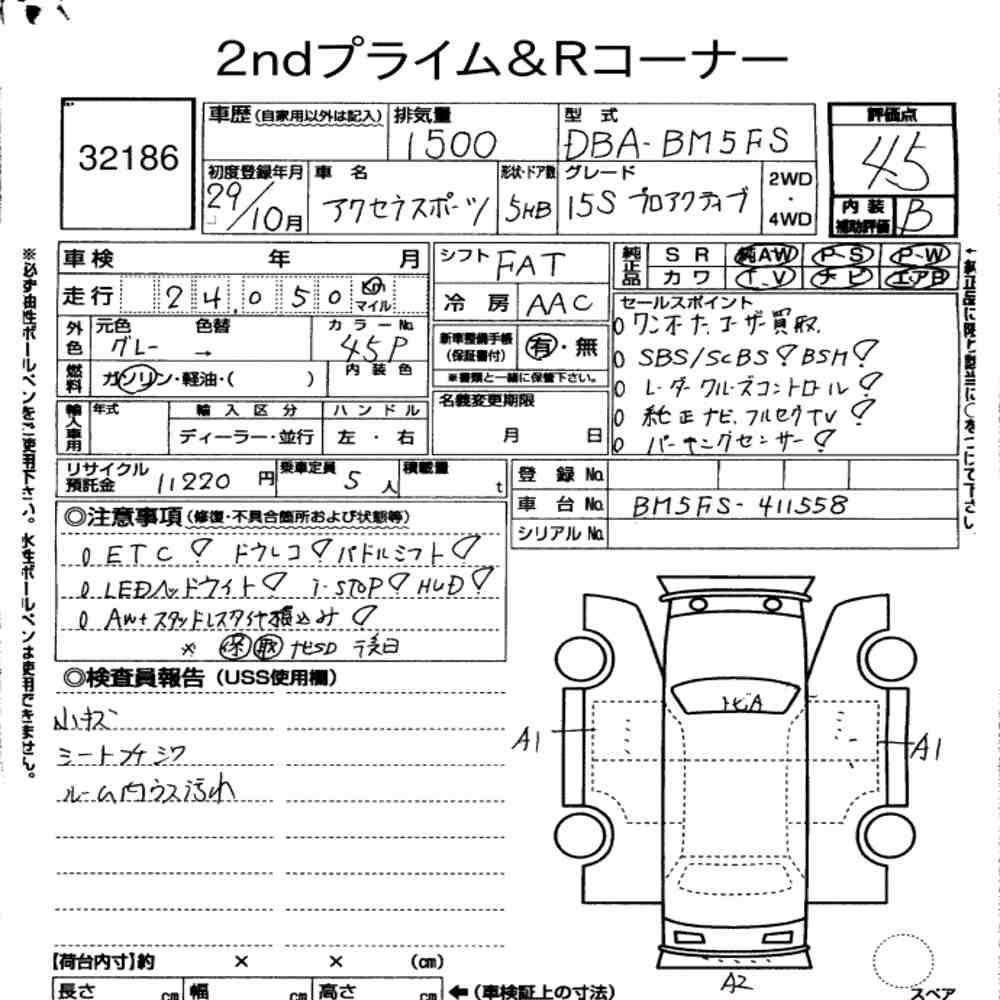 2ndプライム&Rコーナー
32186
車歴(自家用以外は記入)
排気量
1500
型式
DBA-BM5FS
評価点
4.5
初度登録年月
29/10月
車名
アクセラスポーツ
形状・ドア数
5HB
グレード
15S プロアクティブ
2WD
・
4WD
内装
補助評価
B
※必ず油性ボールペンをご使用下さい。水性ボールペンは使用できません。
車検 年 月
走行 24,050 Km
マイル
外色
元色 色替
グレー →
カラーNo.
45P
燃料
ガソリン・軽油・( )
内装色
輸入車用
年式
輸入区分
ディーラー・並行
ハンドル
左・右
シフト FAT
冷房 AAC
新車整備手帳
(保証書付)
有・無
※書類と一緒に保管下さい。
名義変更期限
月 日
純正品
SR 純AW P-S P-W
カワ T.V ナビ エアB
セールスポイント
0 ワンオーナーユーザー買取.
0 SBS/SCBS BSM
0 レーダークルーズコントロール
0 純正ナビ.フルセグTV
0 パーキングセンサー
リサイクル
預託金 11220 円
乗車定員 5 人
積載量 t
登録No.
車台No. BM5FS-411558
シリアルNo.
◎注意事項(修復・不具合箇所および状態等)
0 ETC ドラレコ パドルシフト
0 LEDヘッドライト i-STOP HUD
0 AW+スタッドレスタイヤ積込み
※ 保 取 ナビSD 後日
◎検査員報告(USS使用欄)
小キズ
シートコゲ シワ
ルーム内ウス汚れ
トビA
A1
A1
A2
【荷台内寸】約 × × (cm)
長さ cm 幅 cm 高さ cm ←(車検証上の寸法)
スペア